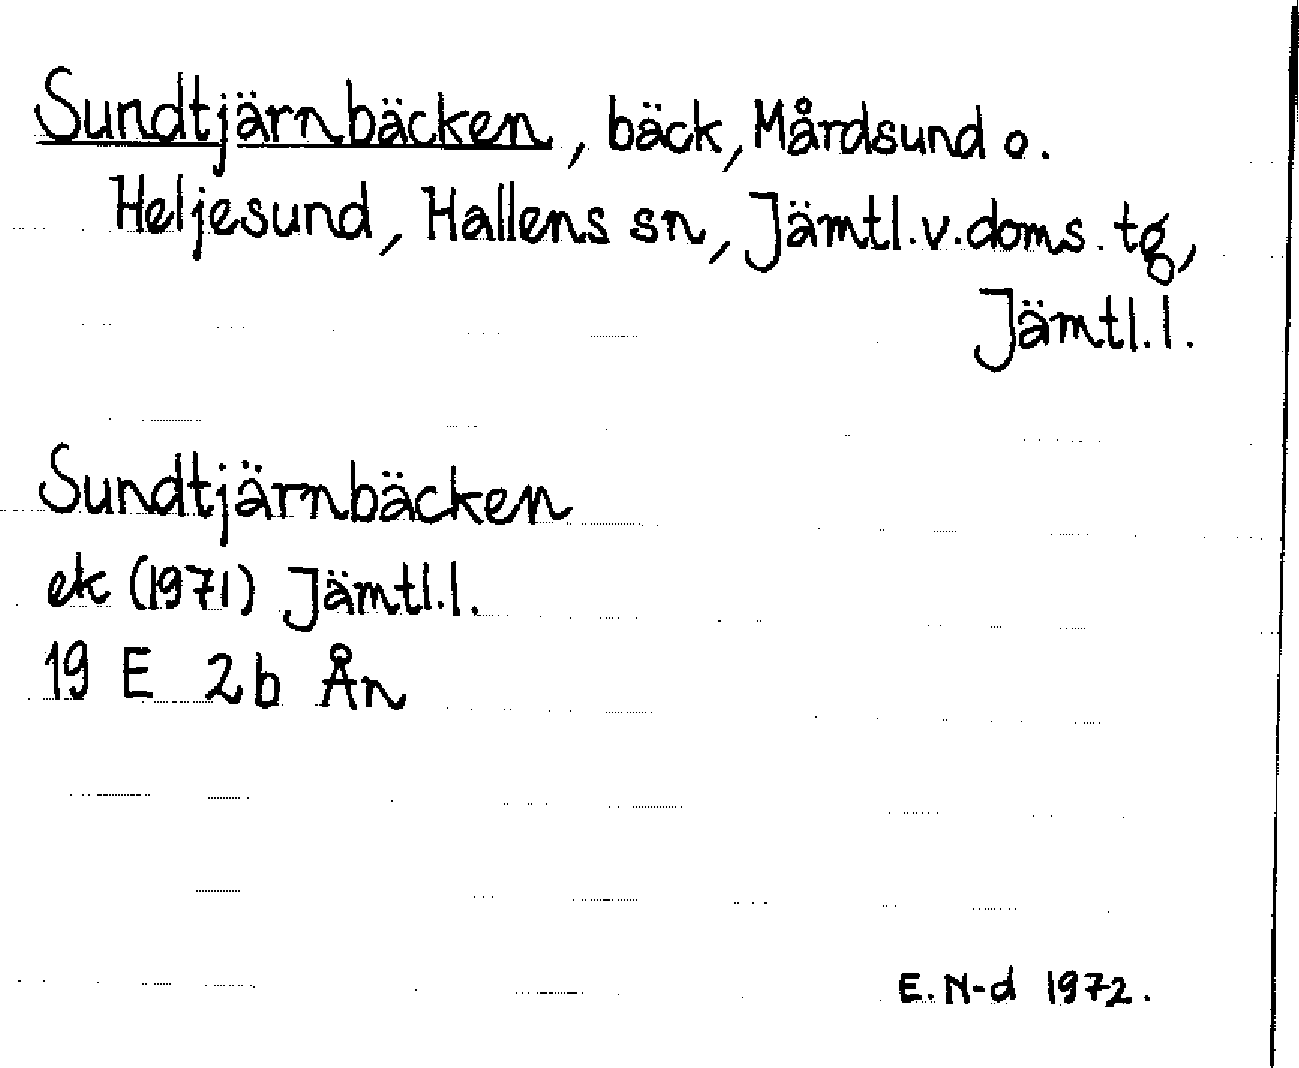 Sundtjärnbäcken, bäck, Mårdsund o.
Heljesund, Hallens sn, Jämtl.v.doms.tg,
Jämtl.l.
Sundtjärnbäcken
ek (1971) Jämtl.l.
19 E 2b Ån
E. N-d 1972.